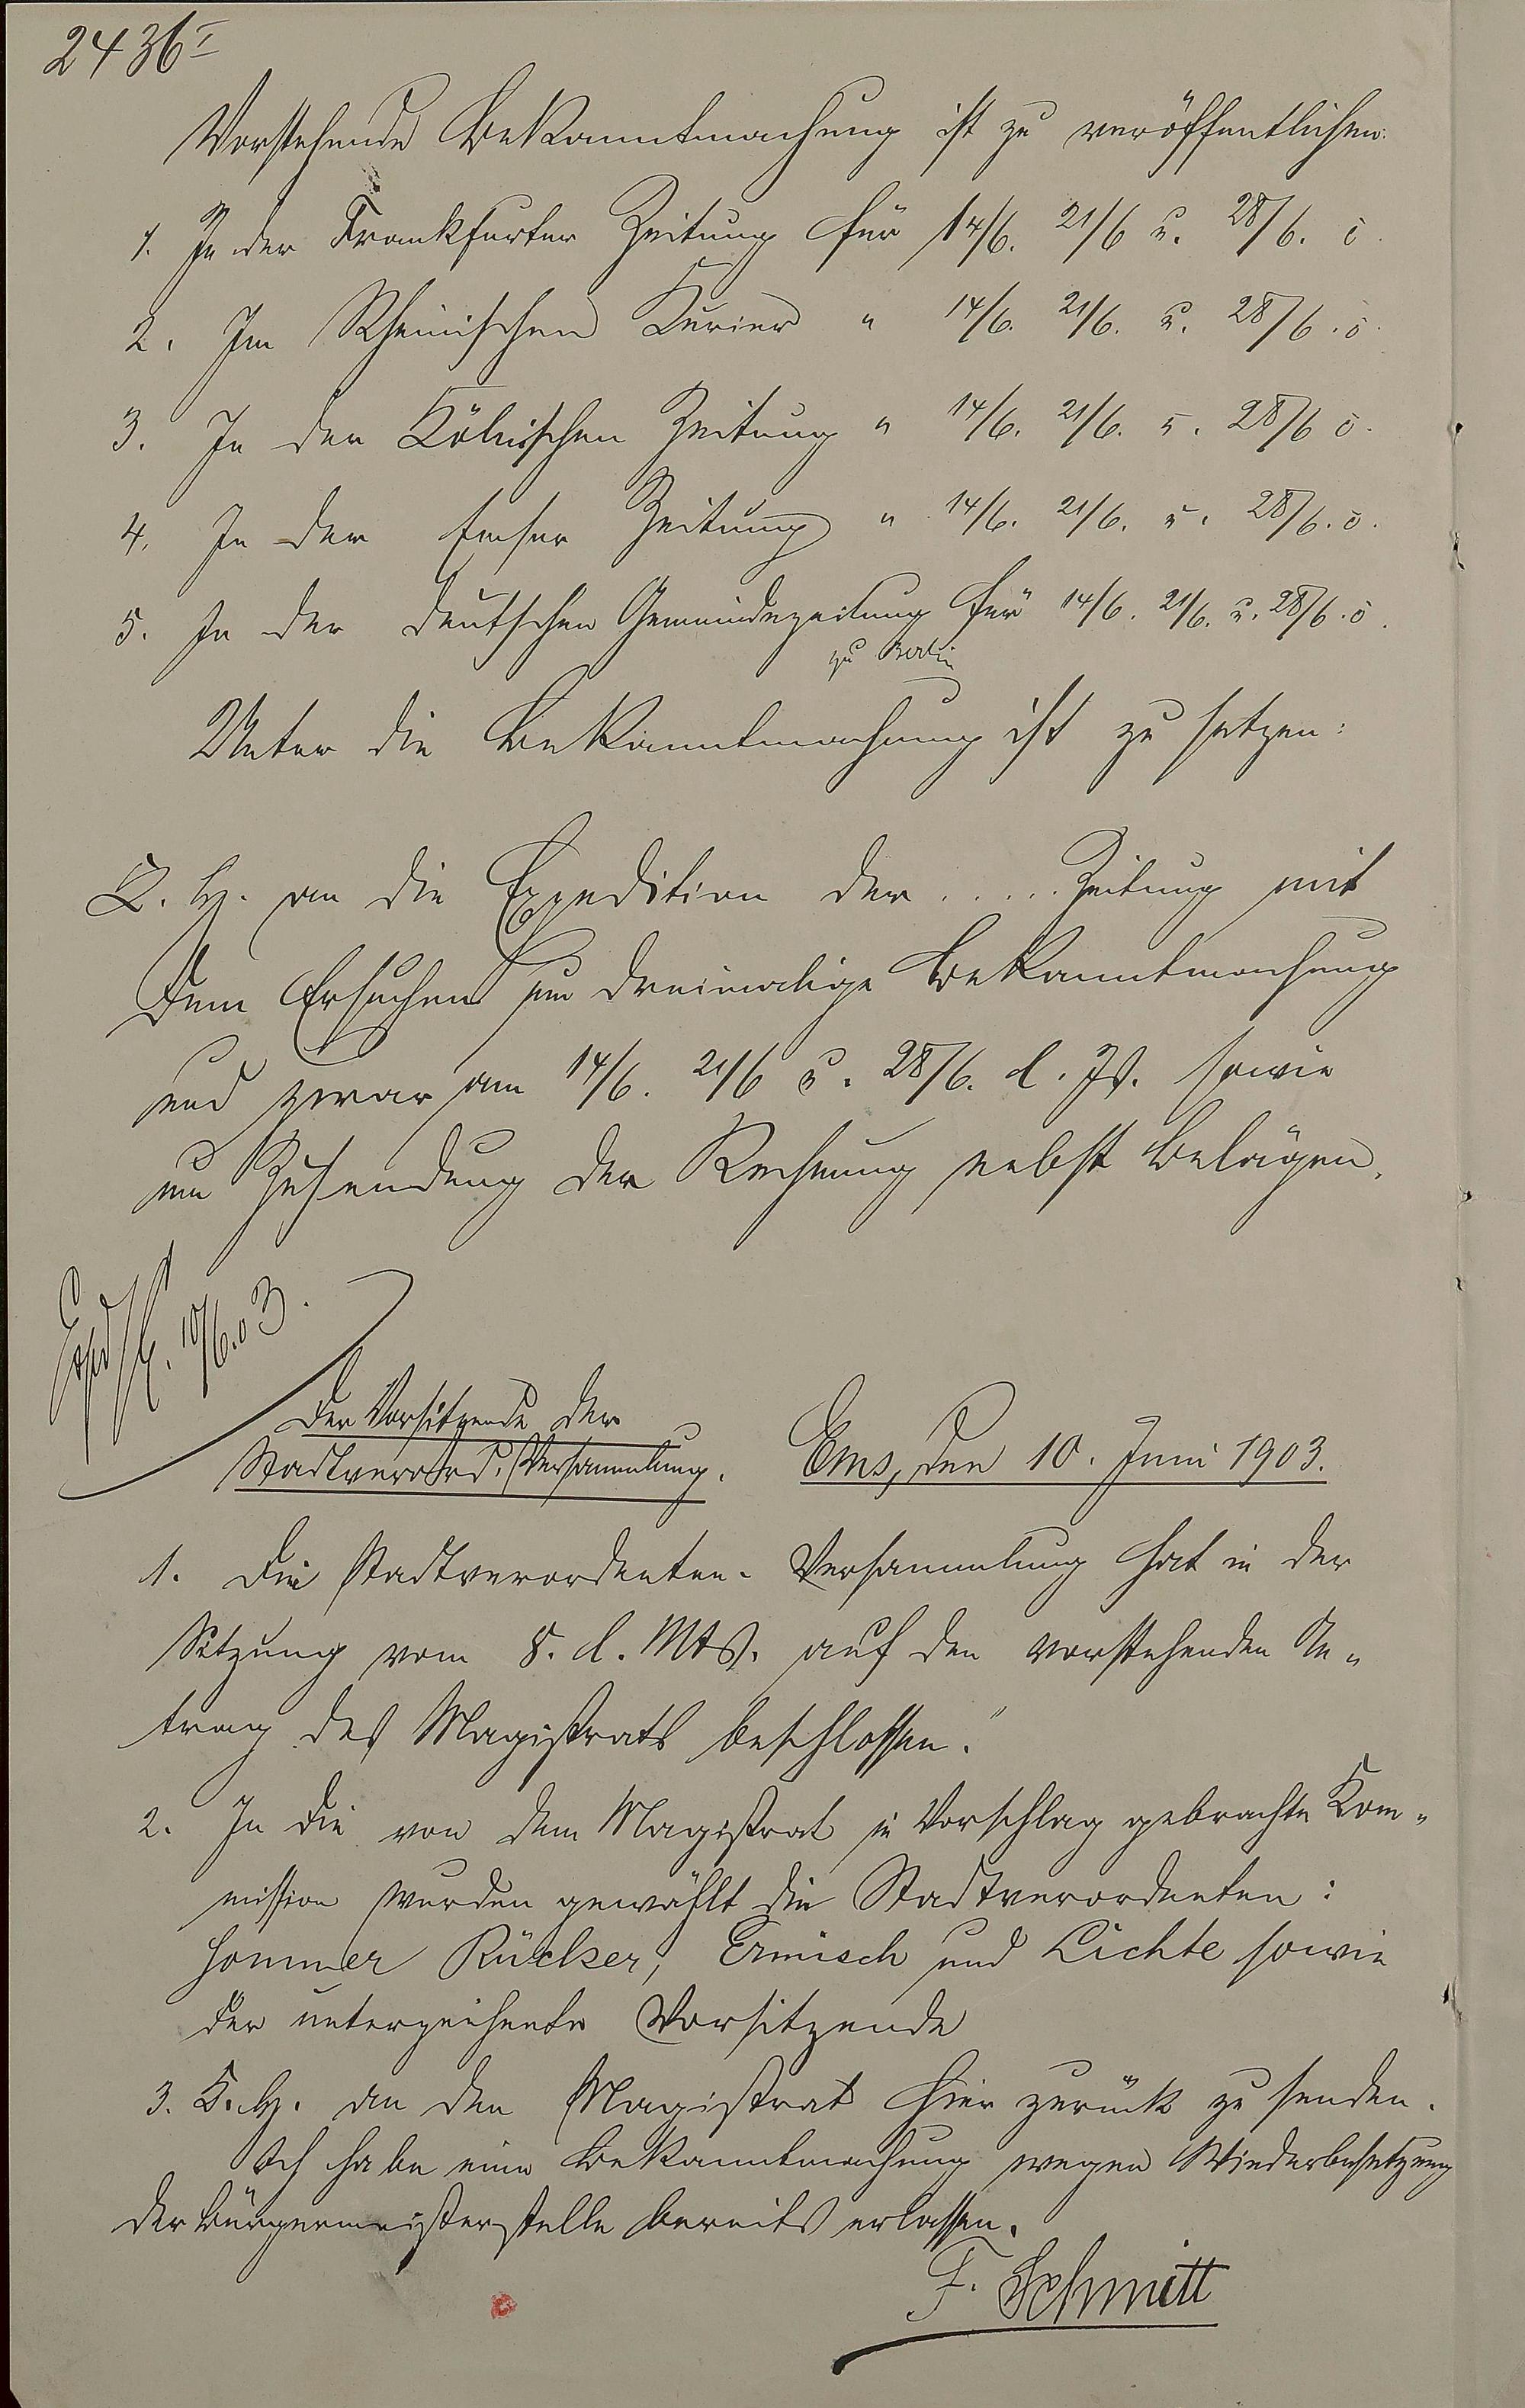 2436 I
Vorstehende Bekanntmachung ist zu veröffentlichen:
1. In der Frankfurter Zeitung für 14/6. 21/6 u. 28/6.
2. Im Rheinischen Kurier " 14/6. 21/6. u. 28/6.
3. In der Kölnischen Zeitung " 14/6. 21/6. u. 28/6
4. In der Emser Zeitung " 14/6. 21/6. u. 28/6.
5. In der deutschen Gemeindezeitung für 14/6. 21/6. u. 28/6.
zu Berlin
Unter die Bekanntmachung ist zu setzen:
an die Expedition der ..... Zeitung mit
dem Ersuchen um dreimalige Bekanntmachung
und zwar am 14/6. 21/6 u. 28/6. d. Js. sowie
um Zusendung der Rechnung nebst Belägen.
10/6.03.
Der Vorsitzende der
Stadtverord. Versammlung. Ems, den 10. Juni 1903.
1. Die Stadtverordneten-Versammlung hat in der
Sitzung vom 8. d. Mts. auf den vorstehenden An-
trag des Magistrats beschlossen.
2. In die von dem Magistrat in Vorschlag gebrachte Kom-
mission wurden gewählt die Stadtverordneten:
Hommer Rücker, Ermisch und Lichte sowie
der unterzeichnete Vorsitzende
3. an den Magistrat hier zurück zu senden.
Ich habe eine Bekanntmachung wegen Wiederbesetzung
der Bürgermeisterstelle bereits erlassen.
F. Schmitt